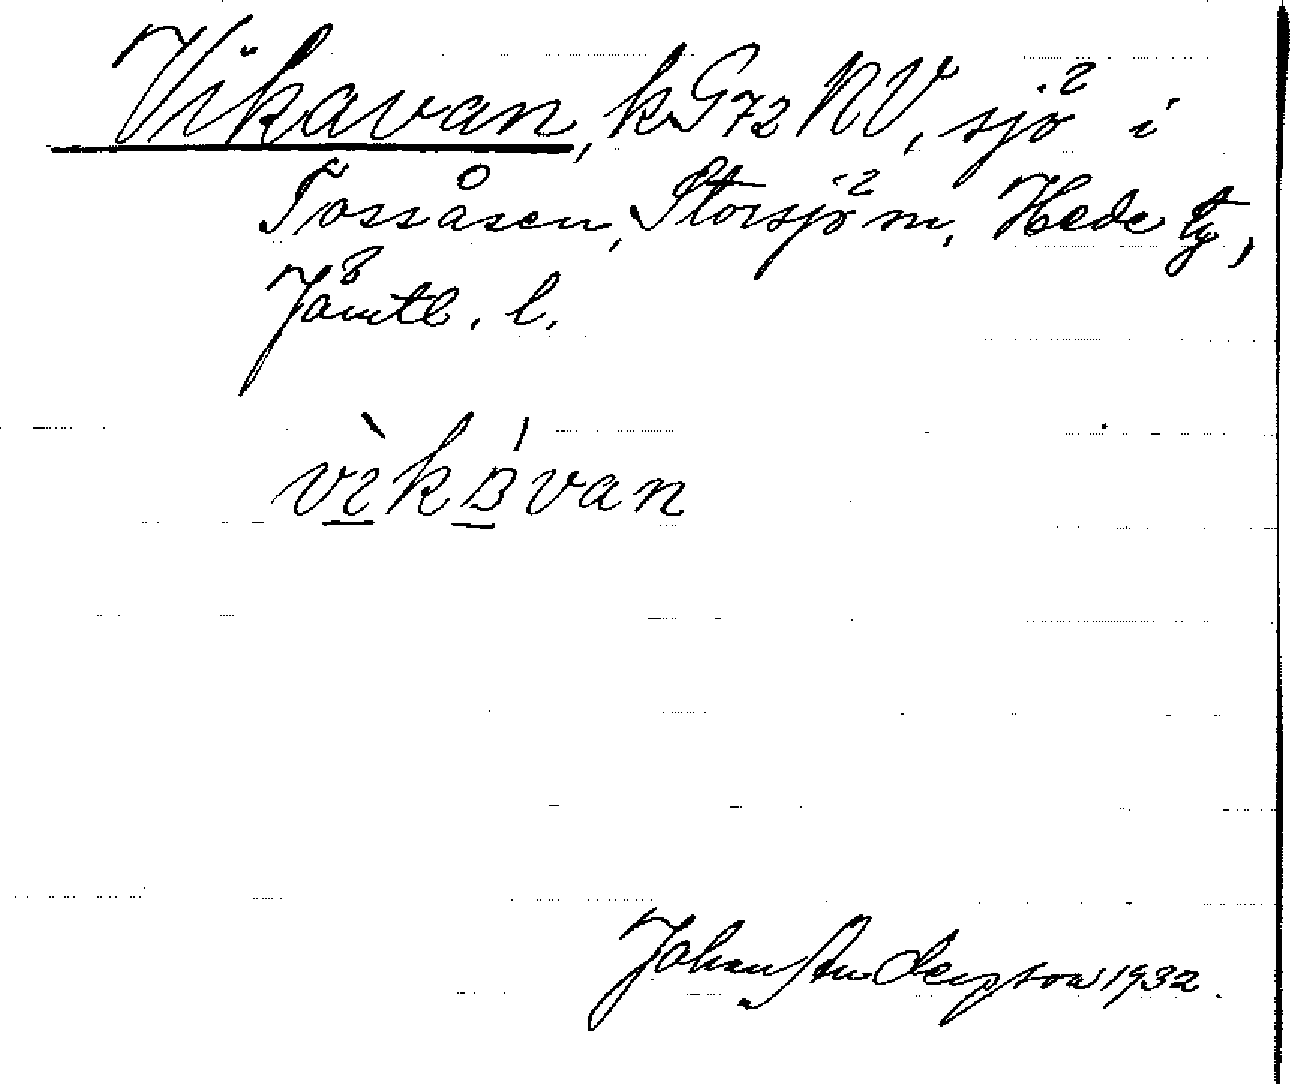 Vikavan, kG72NV, sjö i
Tossåsen, Storsjö sn, Hede tg,
Jämtl. l.
vìkávan
Johan Anderpson 1932.